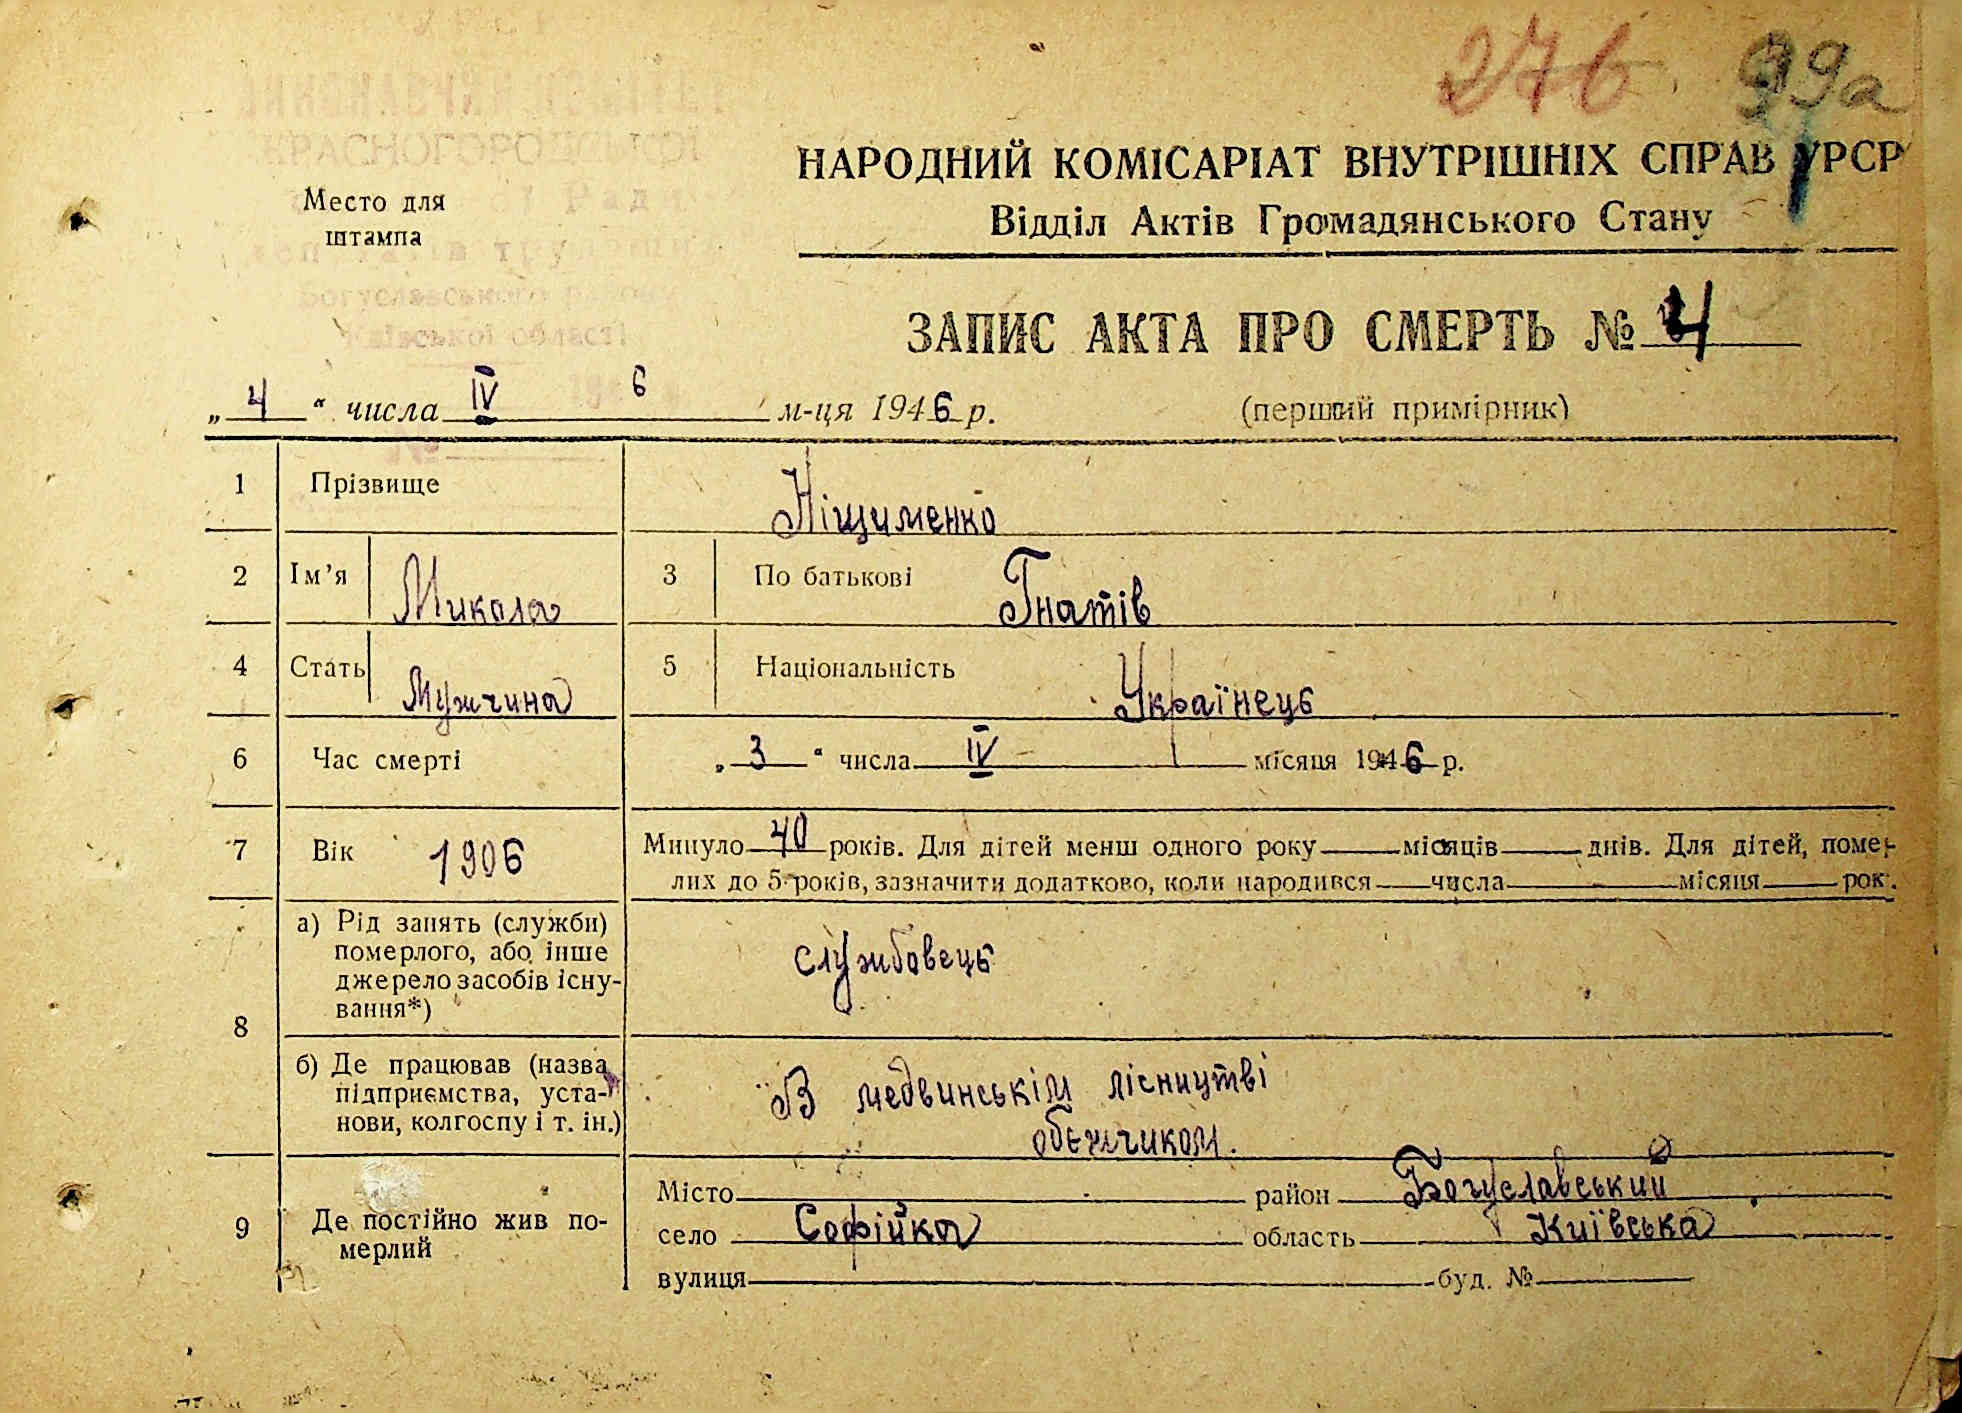 276 99а
ВИКОНАВЧИЙ КОМІТЕТ
КРАСНОГОРОДСЬКОЇ
Ради
депутатів трудящих
Богуславського району
Київської області
Место для
штампа
НАРОДНИЙ КОМІСАРІАТ ВНУТРІШНІХ СПРАВ УРСР
Відділ Актів Громадянського Стану
ЗАПИС АКТА ПРО СМЕРТЬ № 4
„ 4 “ числа IV 6 м-ця 1946 р. (перший примірник)
1 Прізвище Ніщименко
2 Ім’я Микола 3 По батькові Гнатів
4 Стать Мужчина 5 Національність Українець
6 Час смерті „ 3 “ числа IV місяця 1946 р.
7 Вік 1906 Минуло 40 років. Для дітей менш одного року місяців днів. Для дітей, помер-
лих до 5 років, зазначити додатково, коли народився числа місяця рок.
8 а) Рід занять (служби)
померлого, або інше
джерело засобів існу-
вання*)
службовець
б) Де працював (назва
підприємства, уста-
нови, колгоспу і т. ін.)
В медвинськім лісництві
обєжчиком.
9 Де постійно жив по-
мерлий
Місто район Богуславський
село Софійка область Київська
вулиця буд. №